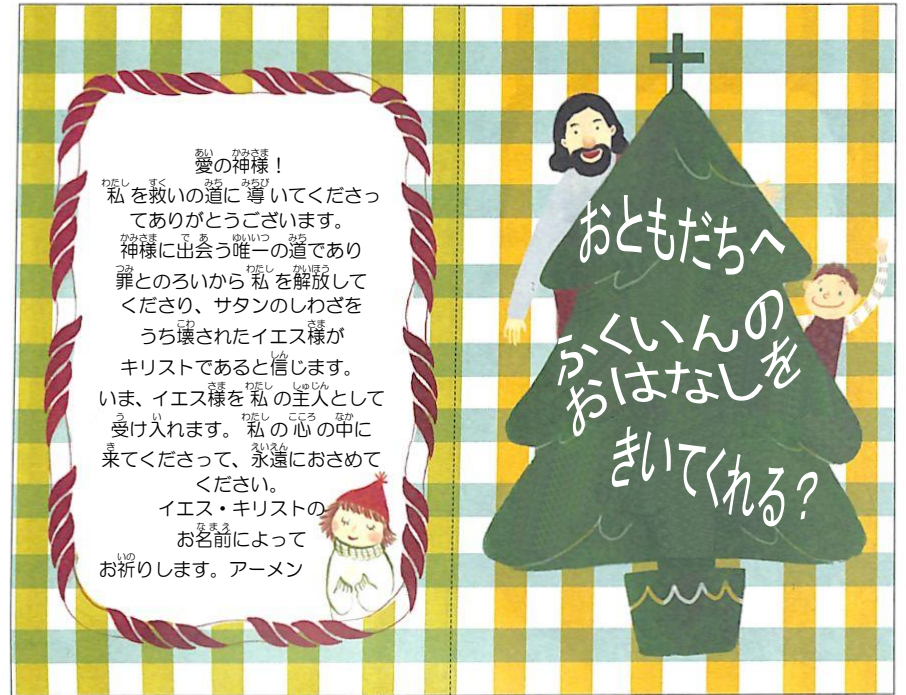 愛の神様！
私を救いの道に導いてくださっ
てありがとうございます。
神様に出会う唯一の道であり
罪とのろいから私を解放して
くださり、サタンのしわざを
うち壊されたイエス様が
キリストであると信じます。
いま、イエス様を私の主人として
受け入れます。私の心の中に
来てくださって、永遠におさめて
ください。
イエス・キリストの
お名前によって
お祈りします。アーメン
おともだちへ
ふくいんの
おはなしを
きいてくれる？